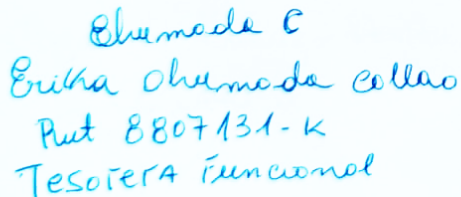 Ehumada C
Erika Ahumada Collao
Rut 8807131-K
Tesorera Funcional